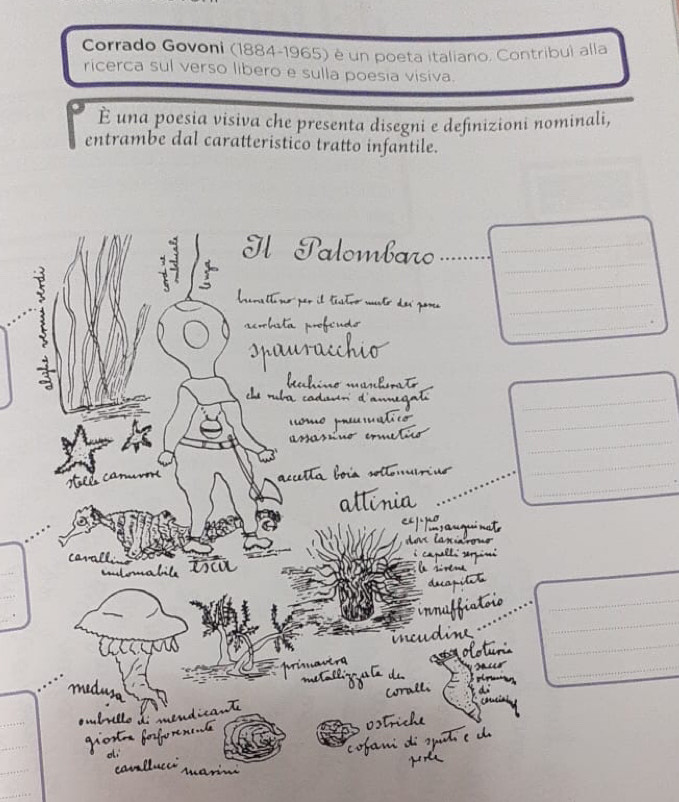 Corrado Govoni (1884-1965) è un poeta italiano. Contribuì alla
ricerca sul verso libero e sulla poesia visiva.
È una poesia visiva che presenta disegni e definizioni nominali,
entrambe dal caratteristico tratto infantile.
Il Palombaro
alighe vermi verdi
burattino per il teatro muto dei pesci
acrobata profondo
spauracchio
becchino mascherato
che ruba cadaveri d'annegati
uomo pneumatico
assassino ermetico
accetta boia sottomarino
stelle carnivore
attinia
ceppo insanguinato
dove lasciarono
i capelli serpini
le sirene
decapitate
innaffiatoio
cavallino
indomabile
esca
incudine
oloturia
sacco
di
primavera
metallizzata dei
coralli
medusa
ombrello di mendicante
giostra fosforescente
di
cavallucci marini
ostriche
cofani di sputi e di
perle